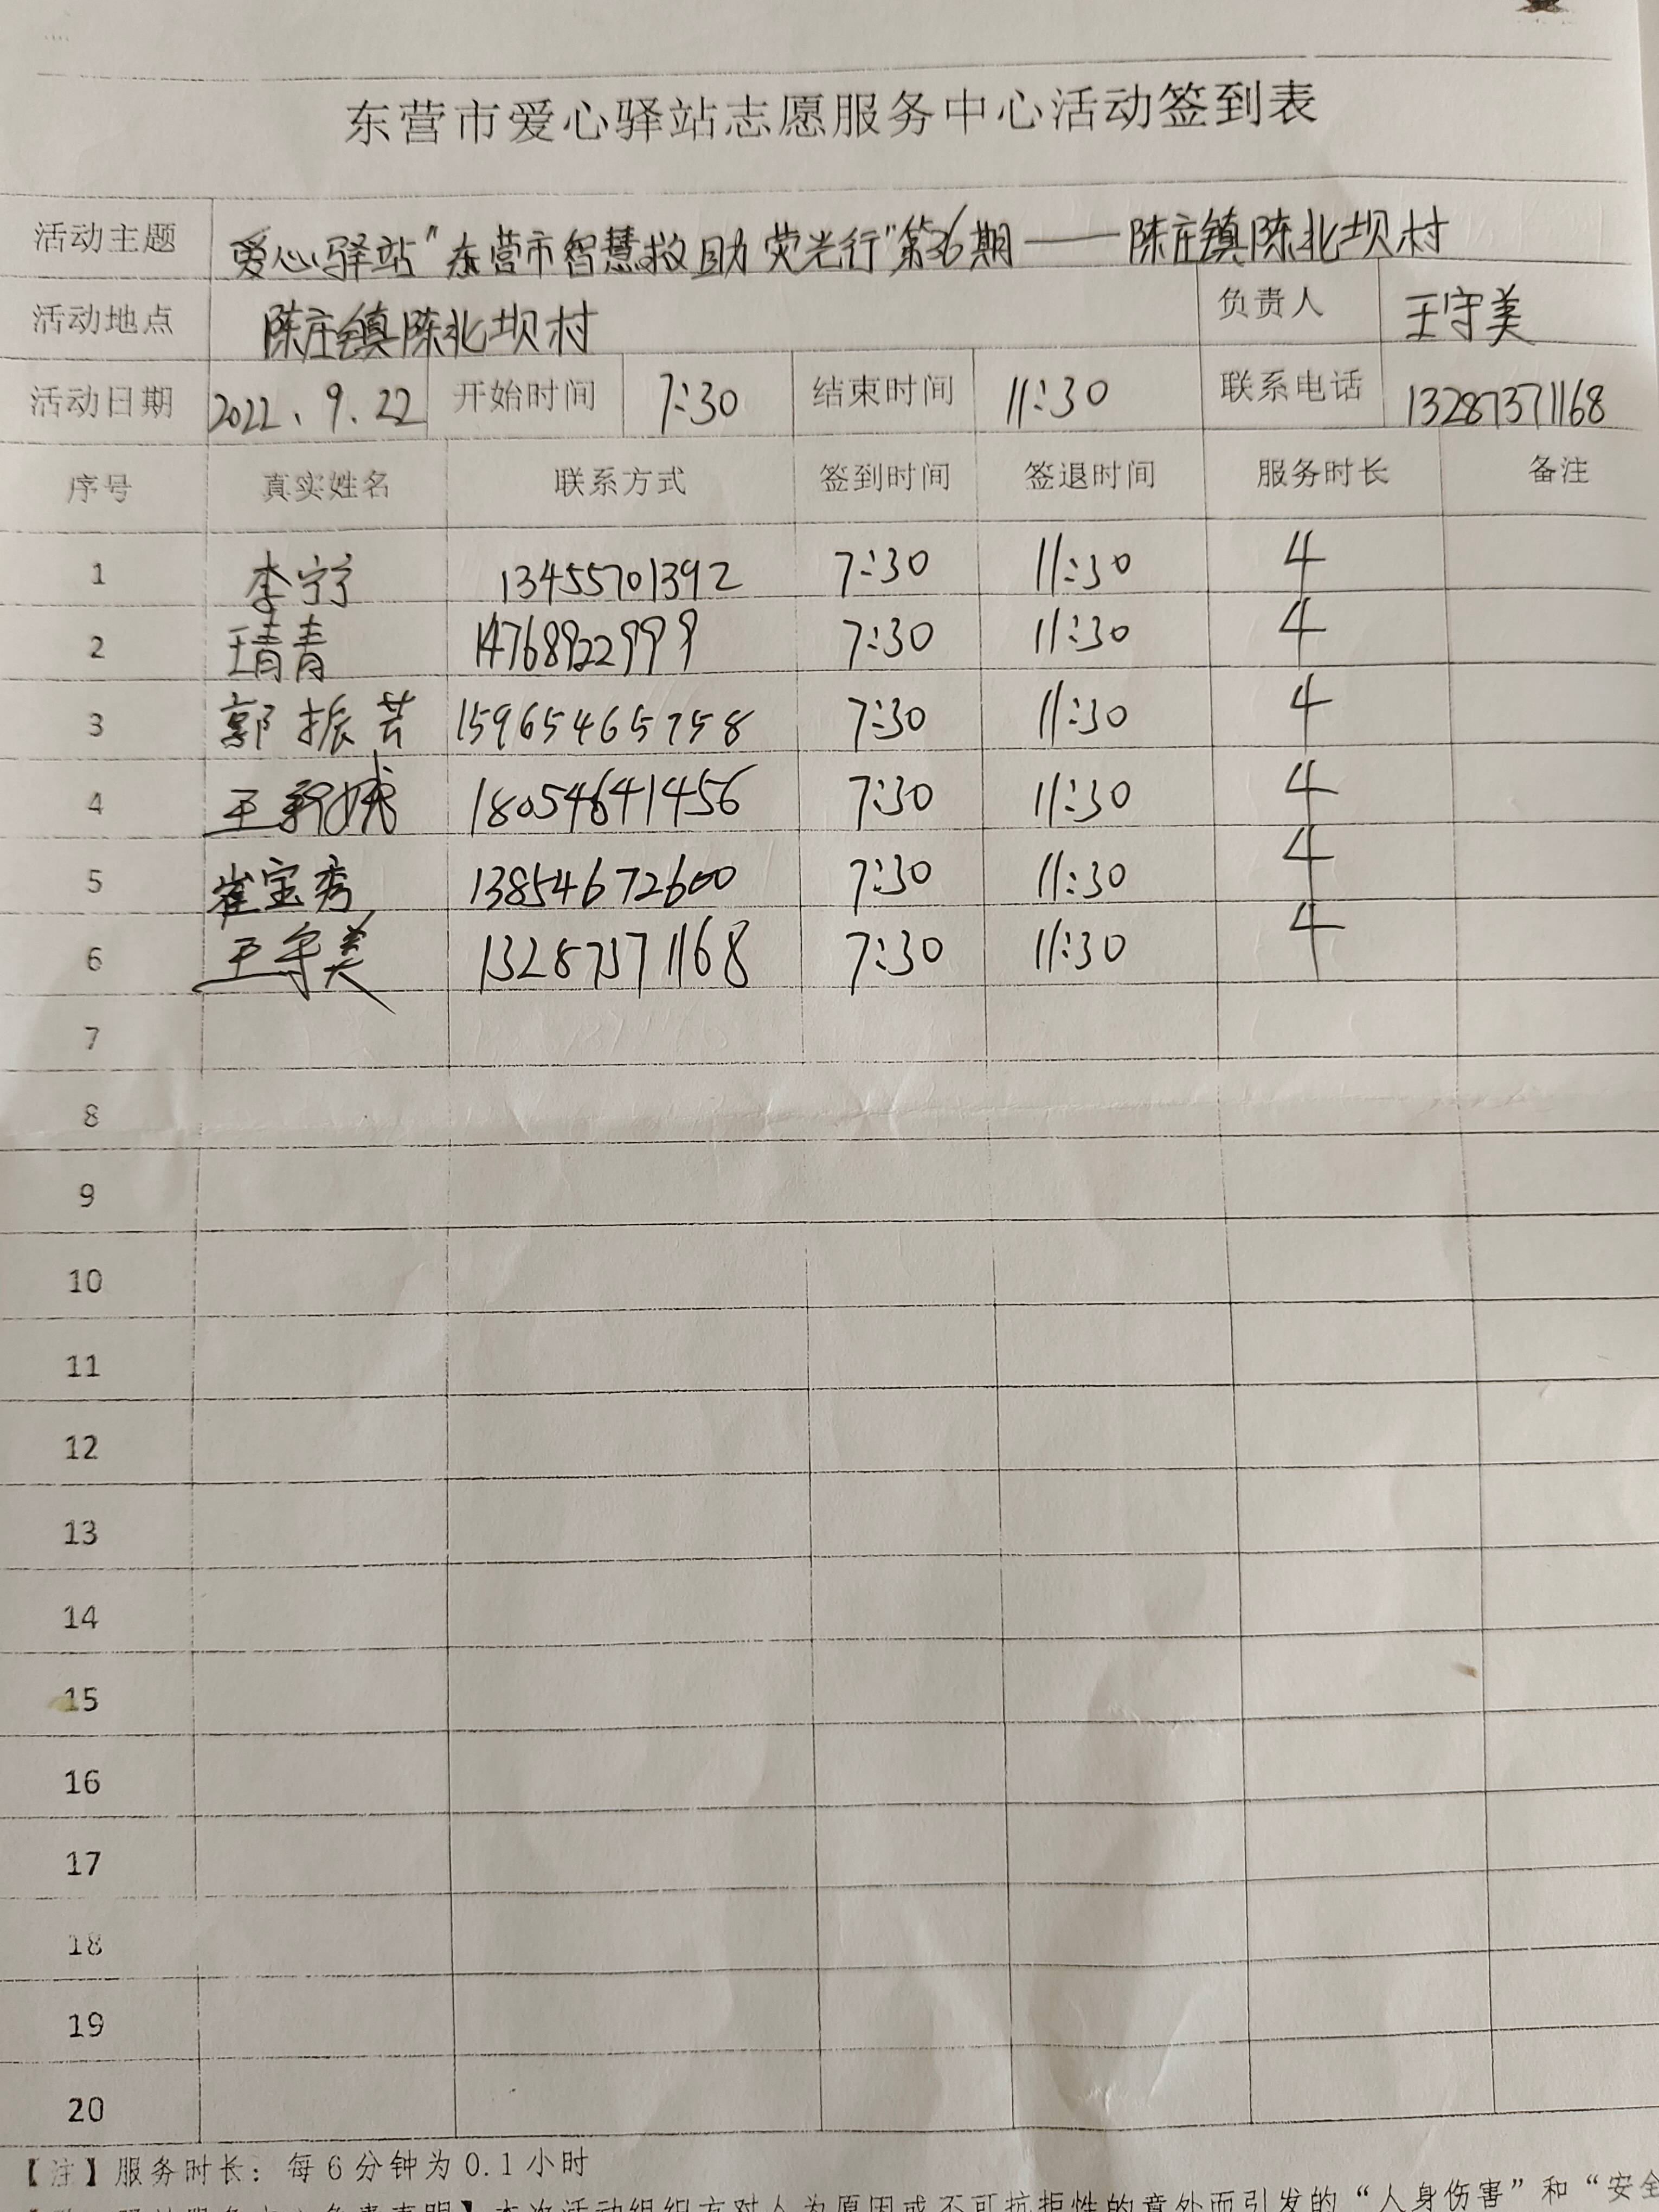 东营市爱心驿站志愿服务中心活动签到表
活动主题 爱心驿站“东营市智慧救助荧光行”第36期——陈庄镇陈北坝村
活动地点 陈庄镇陈北坝村 负责人 王守美
活动日期 2022.9.22 开始时间 7:30 结束时间 11:30 联系电话 13287371168
序号 真实姓名 联系方式 签到时间 签退时间 服务时长 备注
1 李宁宁 13455701392 7:30 11:30 4
2 王青青 14768922999 7:30 11:30 4
3 郭振芸 15965465758 7:30 11:30 4
4 王新娥 18054641456 7:30 11:30 4
5 崔宝秀 13854672600 7:30 11:30 4
6 王守美 13287371168 7:30 11:30 4
7
8
9
10
11
12
13
14
15
16
17
18
19
20
【注】服务时长：每6分钟为0.1小时
本次活动组织方对人为原因或不可抗拒性的意外而引发的“人身伤害”和“安全